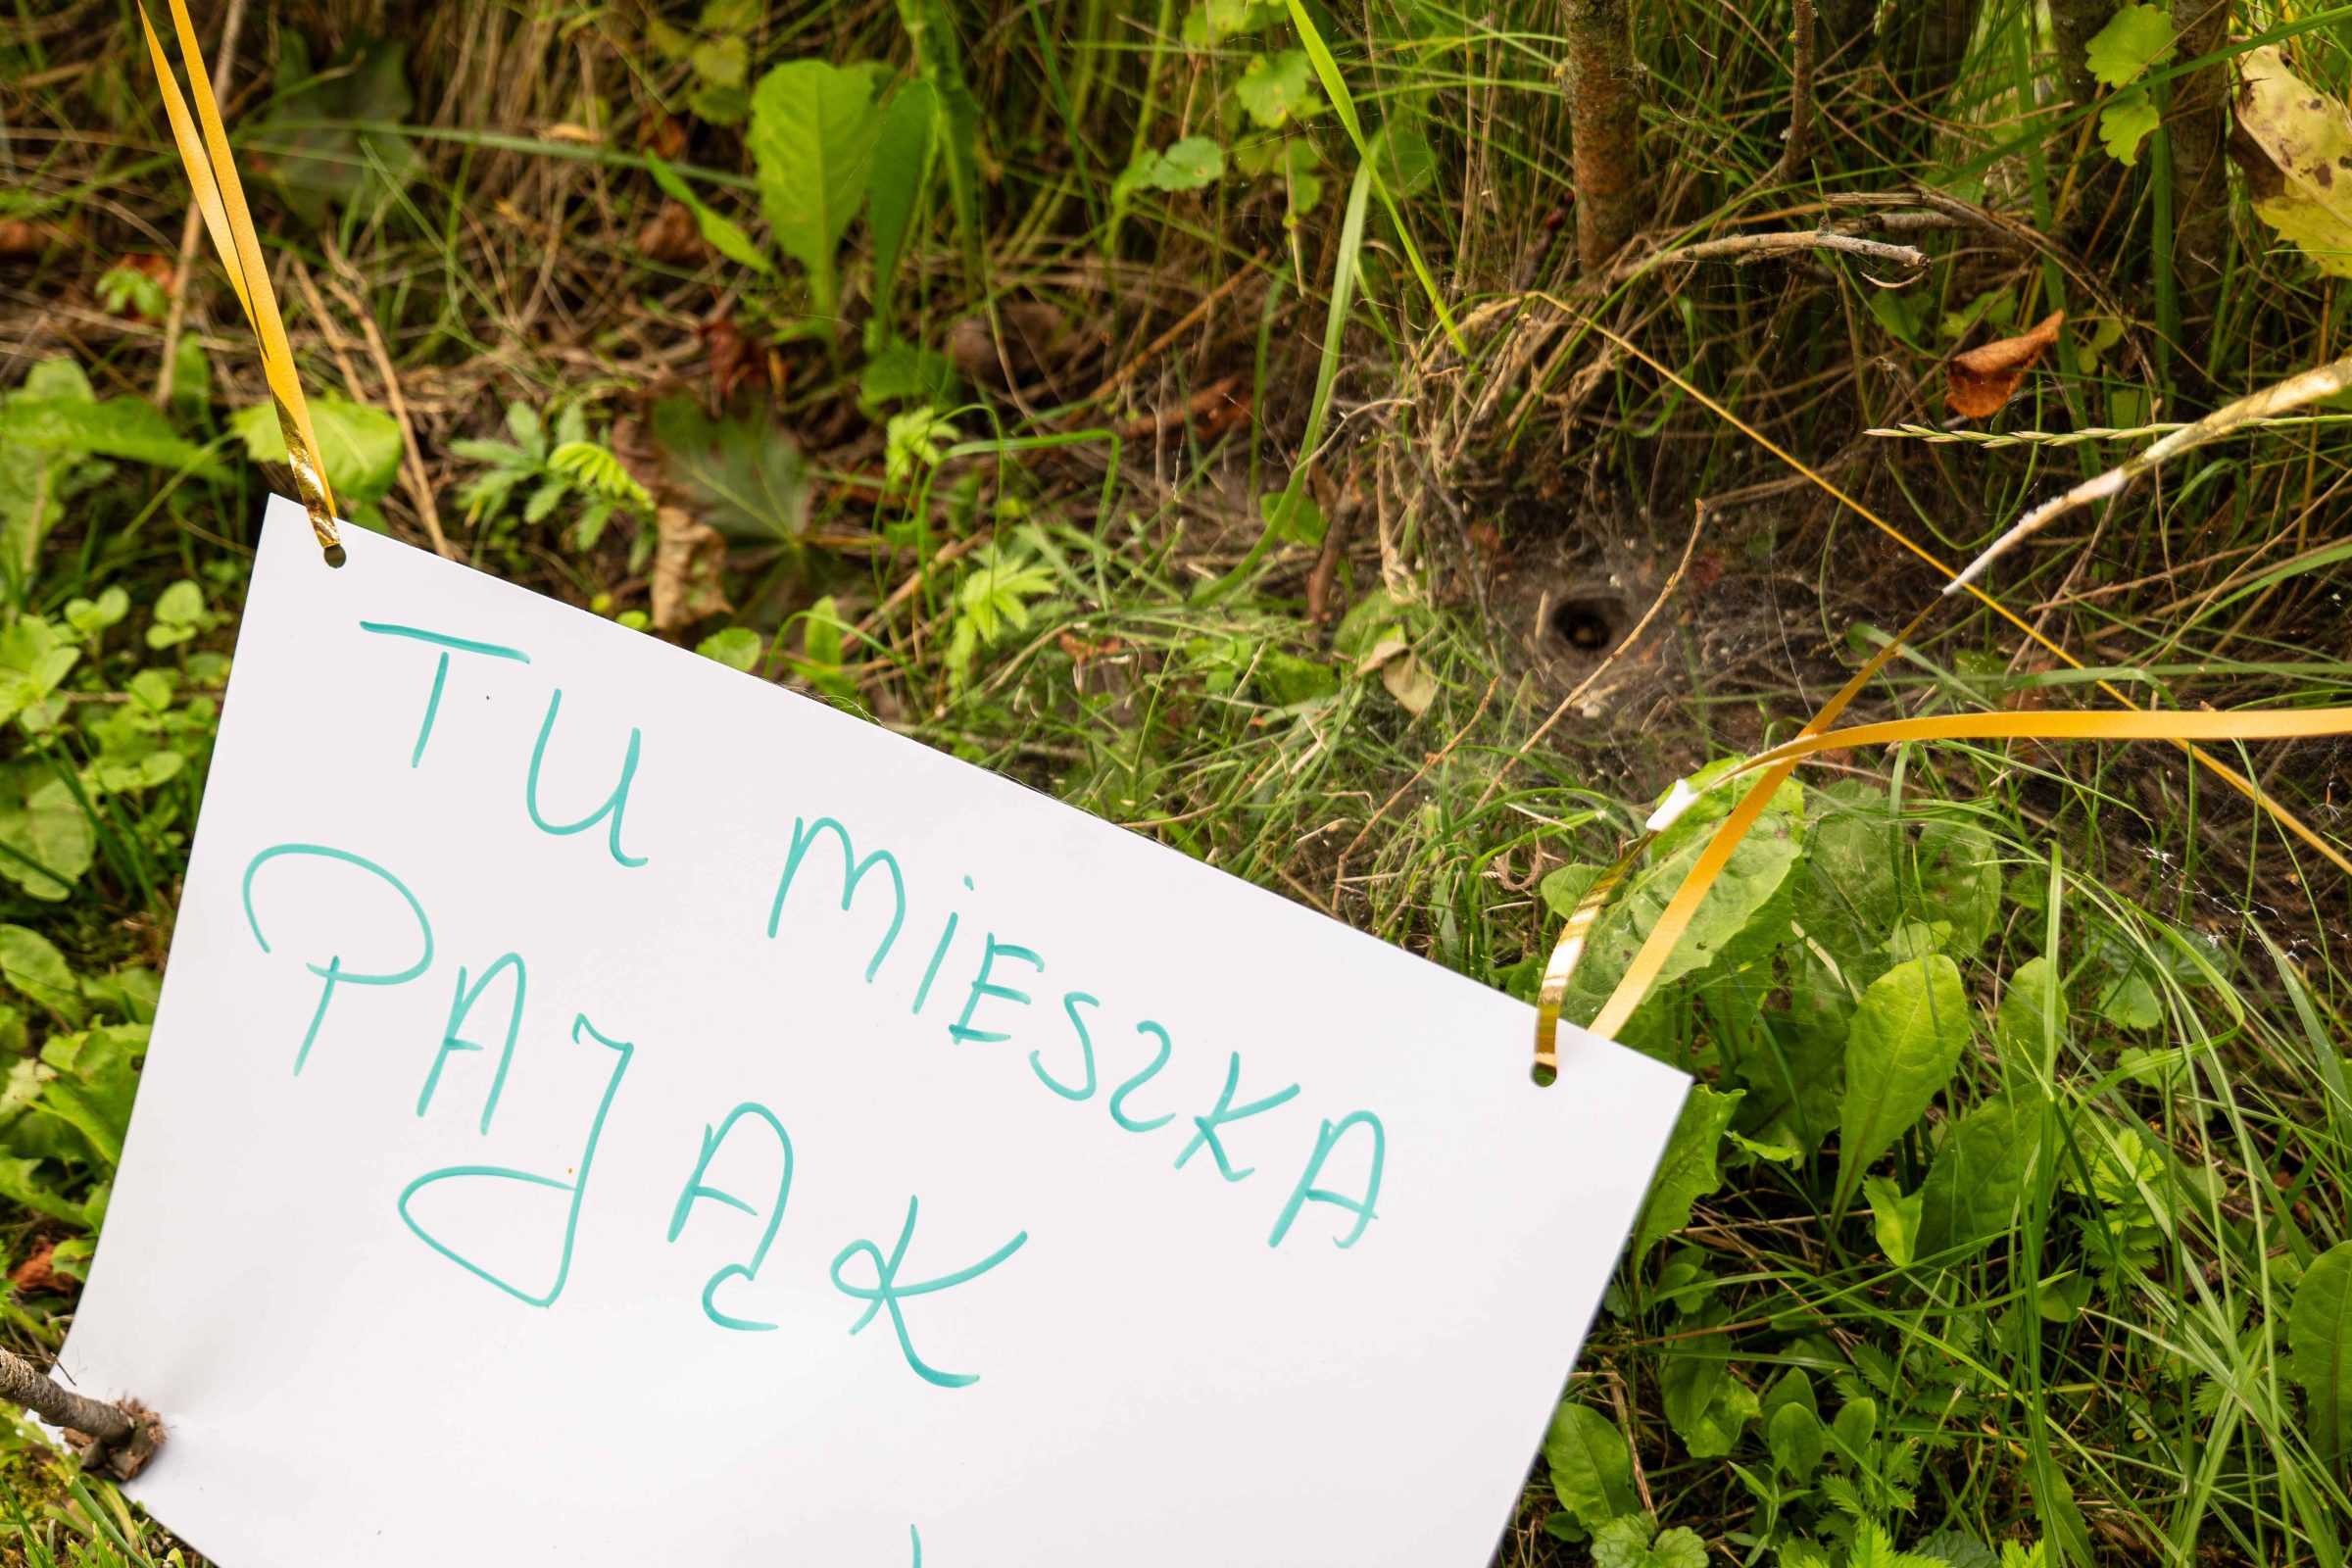 TU MiESZKA
PAJĄK